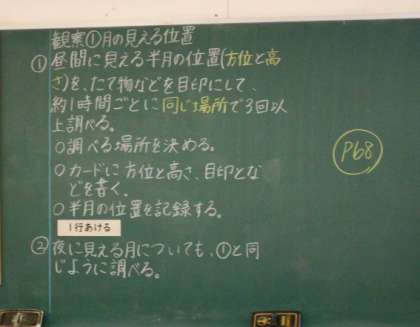 観察①月の見える位置
① 昼間に見える半月の位置(方位と高
さ)を、たて物などを目印にして、
約1時間ごとに同じ場所で3回以
上調べる。
○調べる場所を決める。
○カードに方位と高さ、目印とな
どを書く。
○半月の位置を記録する。
1行あける
② 夜に見える月についても、①と同
じように調べる。
P68